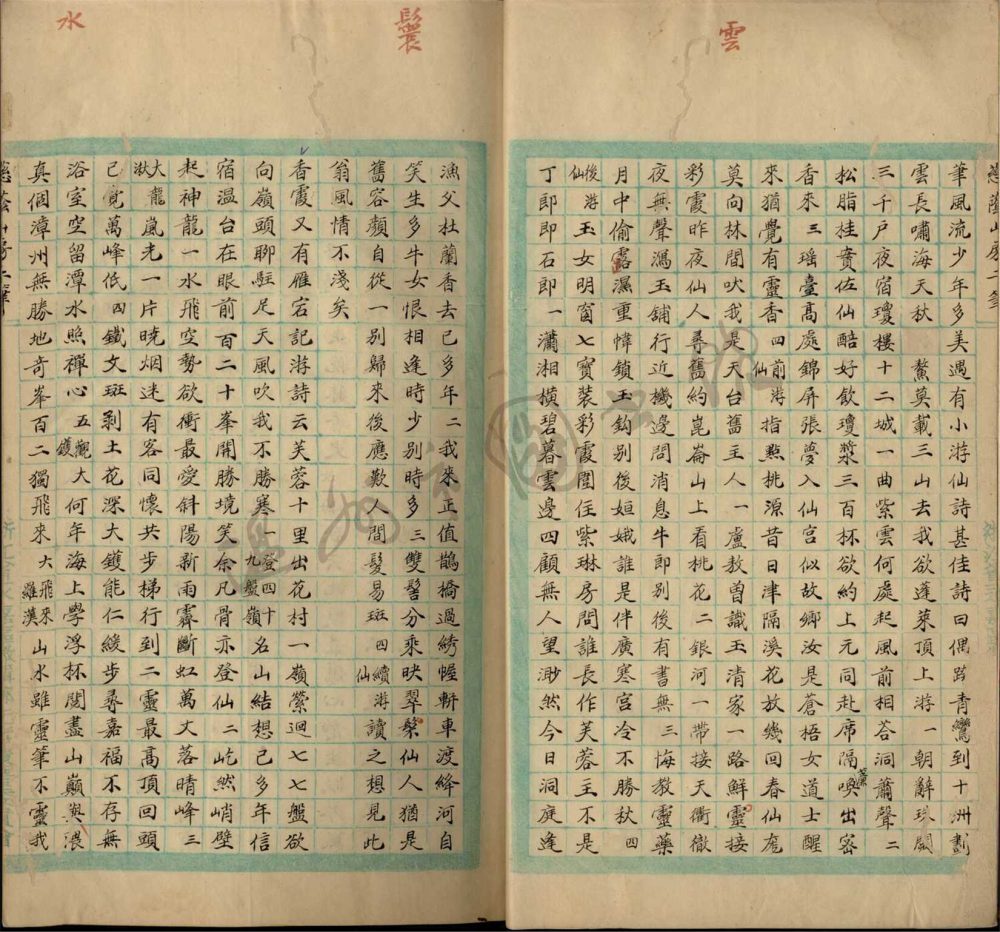 雲
筆風流少年多美遇有小游仙詩甚佳詩曰偶跨青鸞到十洲劃
雲長嘯海天秋 鰲莫載三山去我欲蓬萊頂上游一朝辭珠闕
三千戶夜宿瓊樓十二城一曲紫雲何處起風前相答洞蕭聲二
松脂桂賁佐仙醅好飲瓊漿三百杯欲約上元同赴席隔簾喚出密
香來三瑶臺高處錦屏張夢入仙宫似故鄉汝是蒼梧女道士醒
來猶覺有靈香四前游仙指點桃源昔日津隔溪花放幾回春仙
莫向林間吠我是天台舊主人一盧敖曾識玉清家一路鮮靈接
彩霞昨夜仙人尋舊約崑崙山上看桃花二銀河一帶接天衢徹
夜無聲漏玉鋪行近機邊問消息牛郎別後有書無三悔教靈藥
月中偷露濕重幃鎖玉鈎別後姮娥誰是伴廣寒宮冷不勝秋四
後游仙玉女明窗七寶裝彩霞閣住紫琳房問誰長作芙蓉主不是
丁郎即石郎一瀟湘橫碧暮雲邊四顧無人望渺然今日洞庭逢
鬟
水
漁父杜蘭香去已多年二我來正值鵲橋過綉幄軿車渡絳河自
笑生多牛女恨相逢時少別時多三雙髻分乘映翠鬟仙人猶是
舊容顏自從一別歸來後應歎人間髮易斑四續游仙讀之想見此
翁風情不淺矣
香霞又有雁宕記游詩云芙蓉十里出花村一嶺縈迴七七盤欲
向嶺頭聊駐足天風吹我不勝寒一登四十九盤嶺名山結想已多年信
宿温台在眼前百二十峯開勝境笑余凡骨亦登仙二屹然峭壁
起神龍一水飛空勢欲衝最愛斜陽新雨霽斷虹萬丈落晴峰三
大龍湫嵐光一片曉烟迷有客同懷共步梯行到二靈最高頂回頭
已覺萬峰低四鐵文斑剥土花深大鑊能仁緩步尋嘉福不存無
浴室空留潭水照禪心五觀大鑊何年海上學浮杯閱盡山巔與澴
真個漳州無勝地奇峯百二獨飛來飛來大羅漢山水雖靈筆不靈我